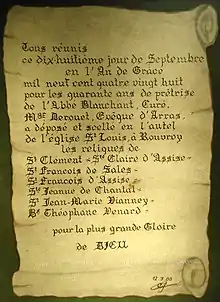 Tous réunis
ce dix-huitième jour de Septembre
en l'An de Grâce
mil neuf cent quatre vingt huit
pour les quarante ans de prêtrise
de l'Abbé Blanchant, Curé,
Mgr Derouet, Evêque d'Arras,
a déposé et scellé en l'autel
de l'église St Louis, à Rouvroy
les reliques de
St Clément - Ste Claire d'Assise -
St François de Sales -
St François d'Assise -
Ste Jeanne de Chantal -
St Jean-Marie Vianney -
Bx Théophane Venard -
pour la plus grande Gloire
de DIEU